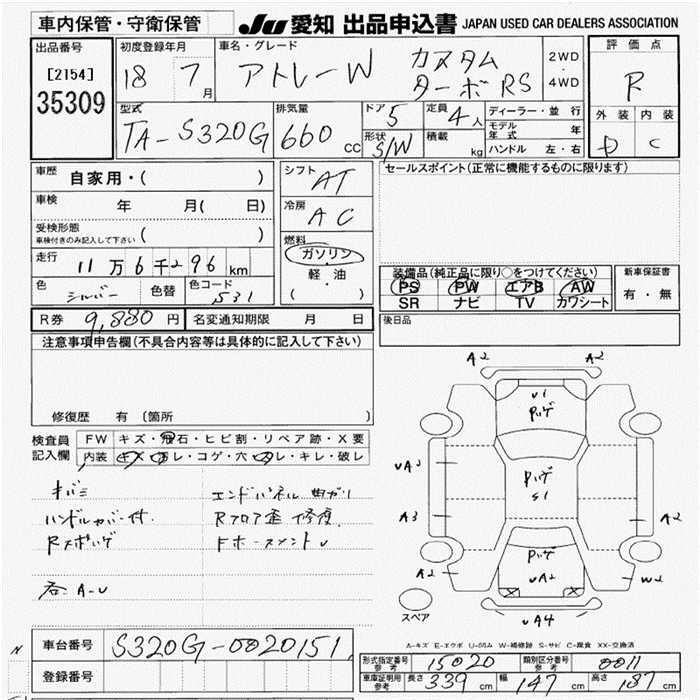 車内保管・守衛保管
JU 愛知 出品申込書 JAPAN USED CAR DEALERS ASSOCIATION
出品番号
[2154]
35309
初度登録年月
18 7月
車名・グレード
アトレーW カスタム
ターボRS
2WD
4WD
評価点
R
外装 内装
D C
型式
TA-S320G
排気量
660 CC
ドア
5
定員
4人
形状
S/W
積載
kg
ディーラー・並行
モデル年式 年
ハンドル 左・右
車歴
自家用・( )
車検
年 月( 日)
受検形態
車検付きのみ記入して下さい ( )
走行
11万6千296km
色
シルバー
色替
色コード
S31
シフト
AT
冷房
AC
燃料
ガソリン
軽・油
( ・ )
セールスポイント(正常に機能するものに限ります)
装備品(純正品に限り○をつけてください)
PS PW エアB AW
SR ナビ TV カワシート
新車保証書
有・無
R券 9,880円 名変通知期限 月 日
後日品
注意事項申告欄(不具合内容等は具体的に記入して下さい)
修復歴 有(箇所
検査員
記入欄
FW キズ・飛石・ヒビ割・リペア跡・X要
内装 キズ・汚レ・コゲ・穴・スレ・キレ・破レ
キバミ
ハンドルカバー付
エンドパネル曲ガリ
Rフロア歪 修復
A-U
A2 A2
U1
P
UA3
P
S1
A3
A2
A2
P
UA2
W2
UA4
スペア
A-キズ E-エクボ U-凹み W-補修跡 S-サビ C-腐食 XX-交換済
N
車台番号 S320G-0020151
登録番号
形式指定番号
参考
15020
類別区分番号
参考
0011
車庫証明用
参考
長さ 339cm 幅 147cm 高さ 187cm